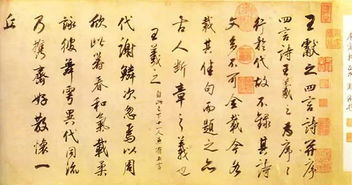 王獻之四言詩并序
四言詩王羲之為序序
行於代故不錄其詩
文多不可全載今各
裁其佳句而題之亦
古人斷章之義也
王羲之
代謝鱗次忽焉以周
欣此暮春和氣載柔
詠彼舞雩異代同流
乃攜齊好散懷一
丘